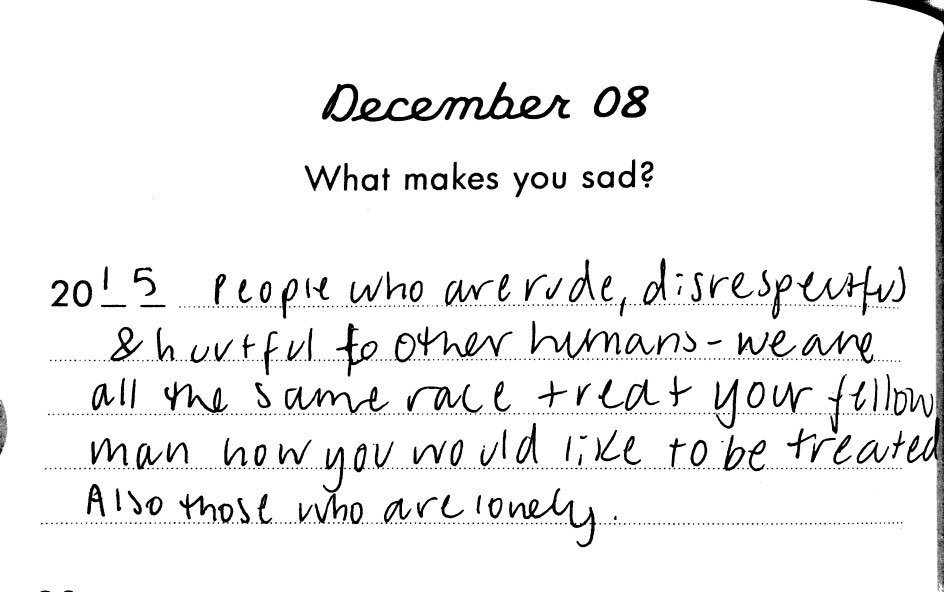 December 08
What makes you sad?
2015 People who are rude, disrespectful
& hurtful to other humans - we are
all the same race treat your fellow
man how you would like to be treated
Also those who are lonely.